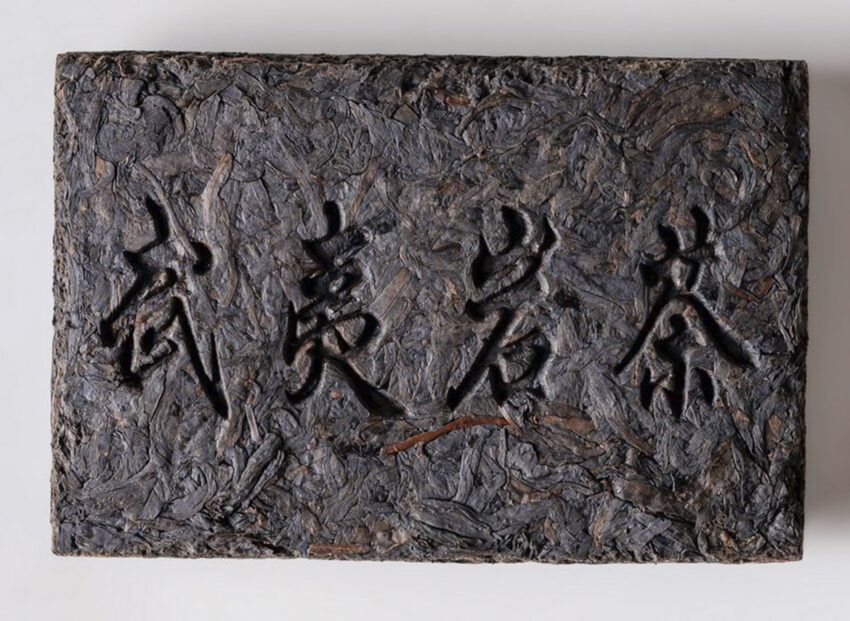 武夷岩茶